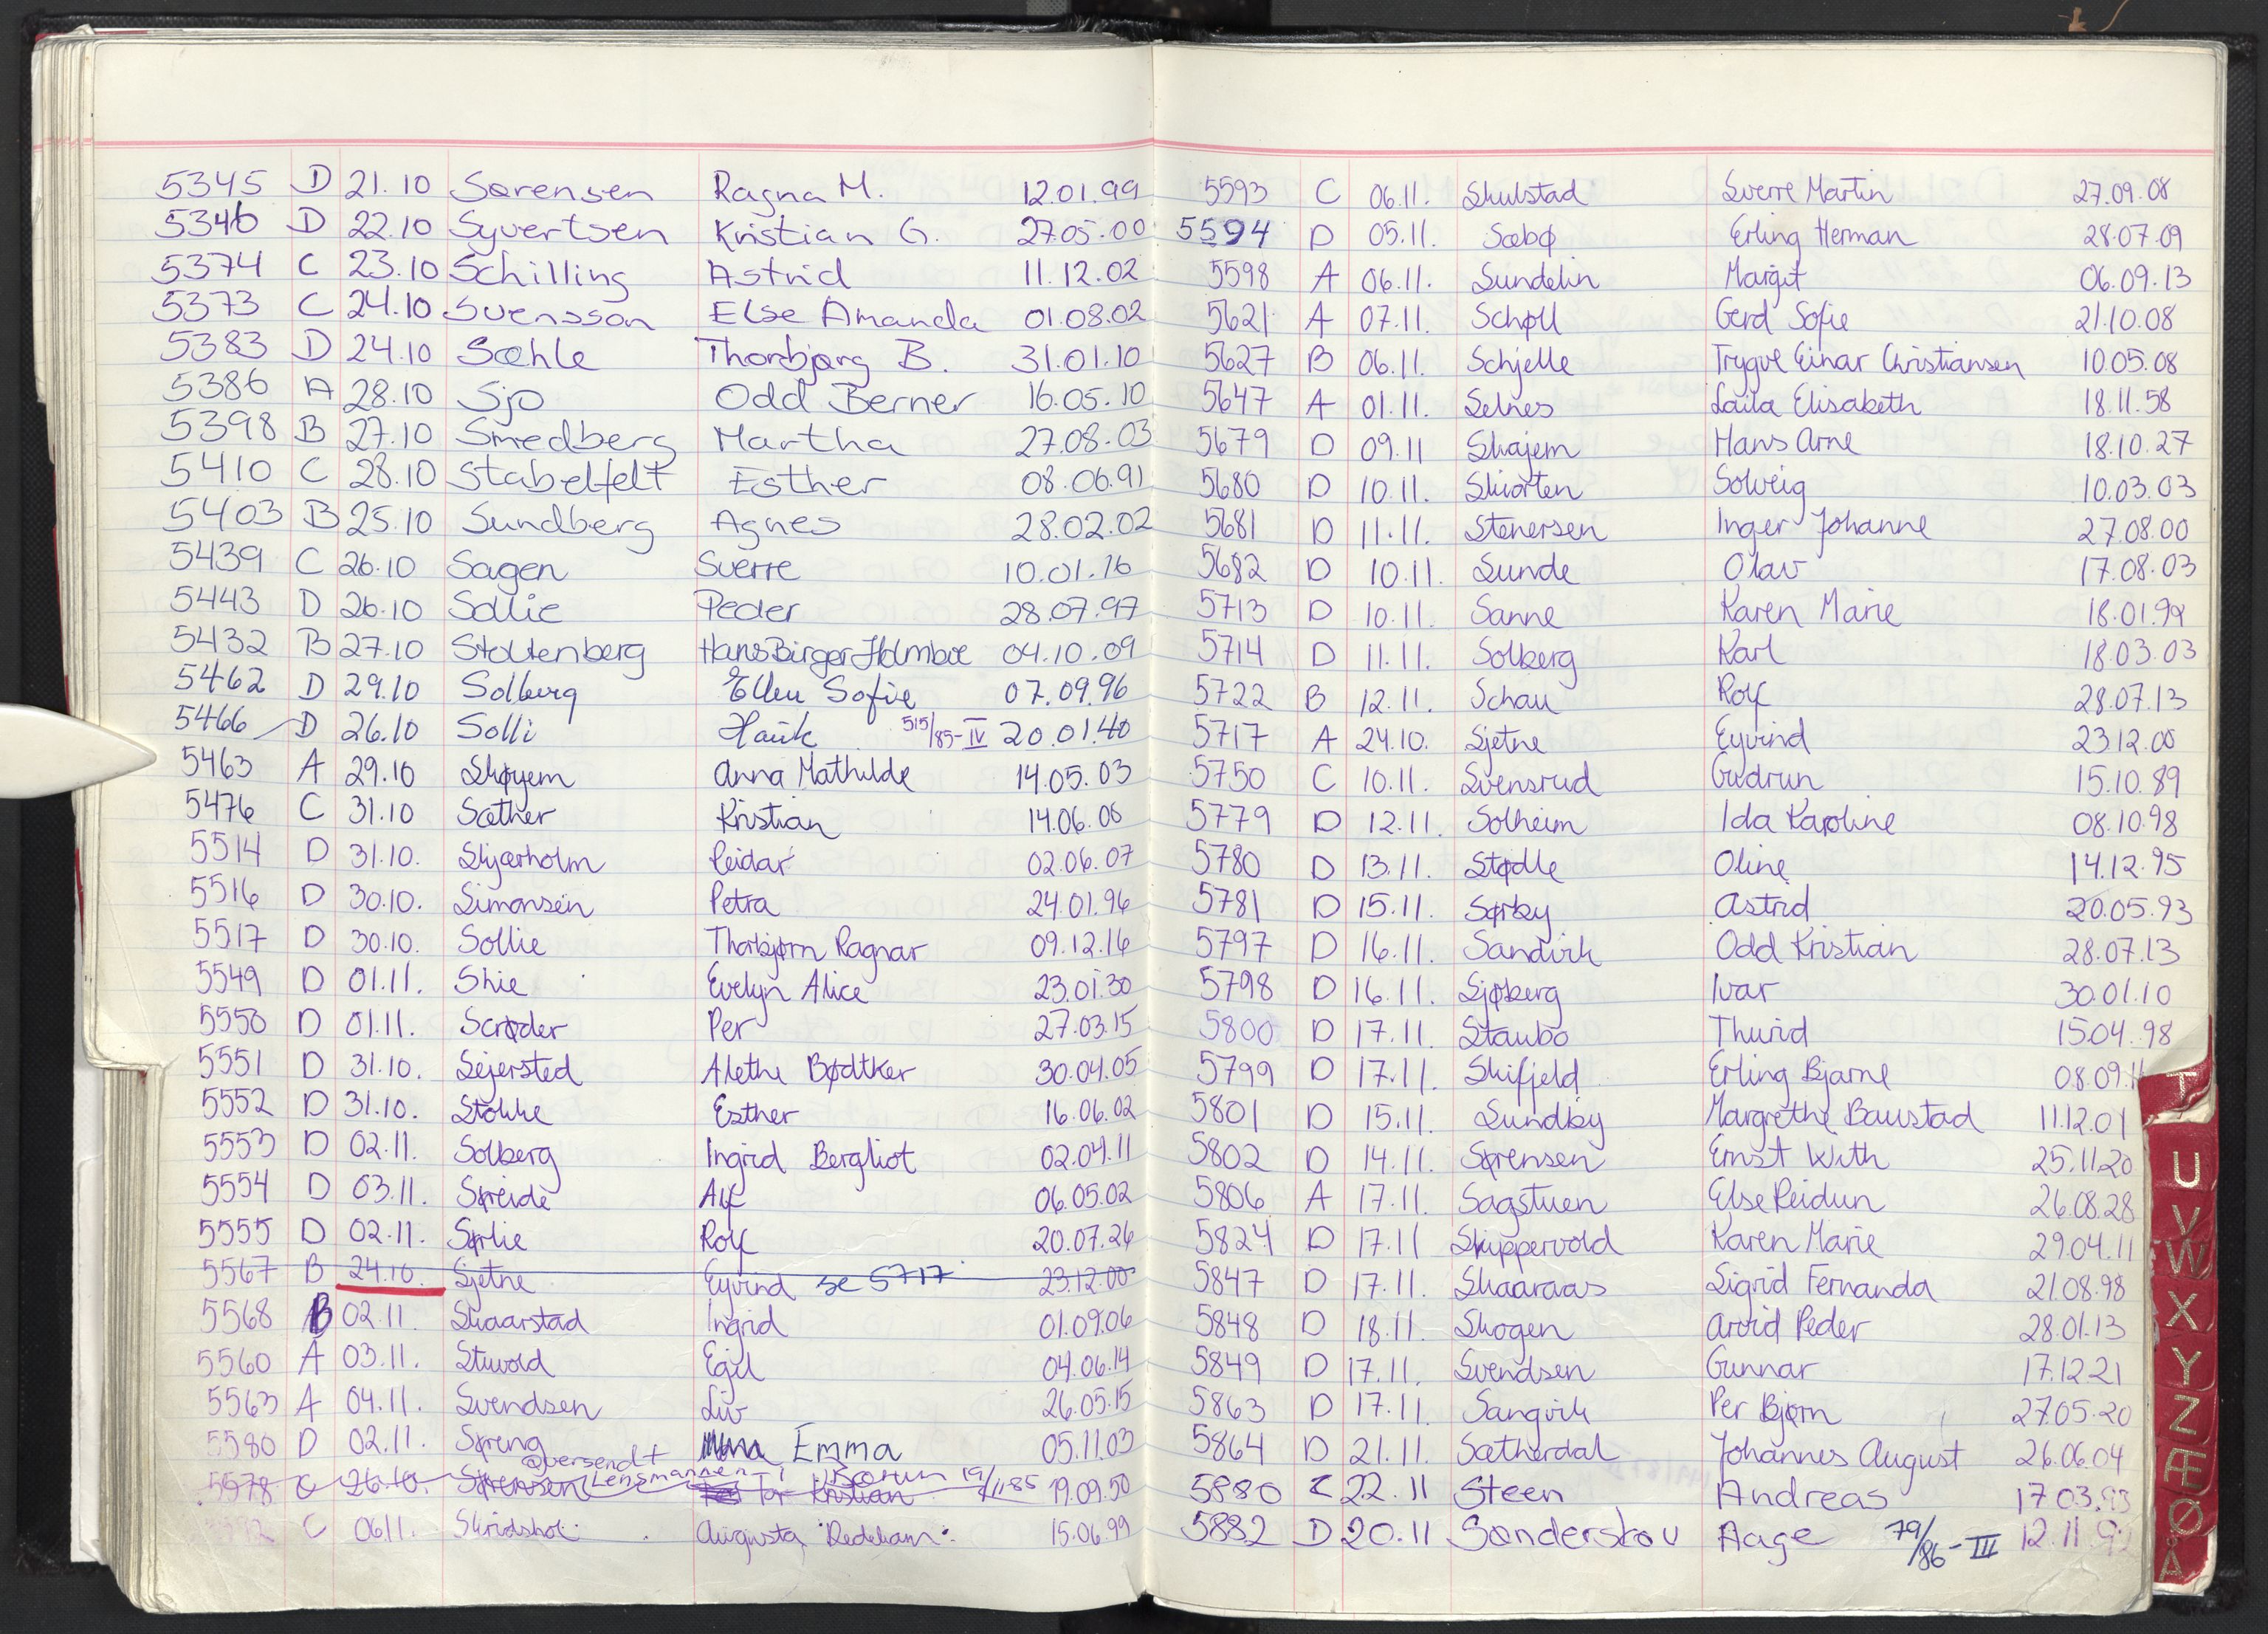 5345 D 21.10 Sørensen Ragna M. 12.01.99
5346 D 22.10 Syvertsen Kristian G. 27.05.00
5374 C 23.10 Schilling Astrid 11.12.02
5373 C 24.10 Svensson Else Amanda 01.08.02
5383 D 24.10 Sæhle Thorbjørg B. 31.01.10
5386 A 28.10 Sjo Odd Berner 16.05.10
5398 B 27.10 Smedberg Martha 27.08.03
5410 C 28.10 Stabelfelt Esther 08.06.91
5403 B 25.10 Sundberg Agnes 28.02.02
5439 C 26.10 Sagen Sverre 10.01.16
5443 D 26.10 Sollie Peder 28.07.97
5432 B 27.10 Stoltenberg Hans Birger Holmboe 04.10.09
5462 D 29.10 Solberg Ellen Sofie 07.09.96
5466 D 26.10 Solli Hauk 515/85-IV 20.01.40
5463 A 29.10 Skøyem Anna Mathilde 14.05.03
5476 C 31.10 Sæther Kristian 14.06.08
5514 D 31.10. Skjærholm Reidar 02.06.07
5516 D 30.10. Simonsen Petra 24.01.96
5517 D 30.10. Sollie Thorbjørn Ragnar 09.12.16
5549 D 01.11. Skie Evelyn Alice 23.01.30
5550 D 01.11. Scrøder Per 27.03.15
5551 D 31.10. Sejersted Alethe Bødtker 30.04.05
5552 D 31.10. Stokke Esther 16.06.02
5553 D 02.11. Solberg Ingrid Bergliot 02.04.11
5554 D 03.11. Søreide Alf 06.05.02
5555 D 02.11. Sørlie Rolf 20.07.26
5567 B 24.10. Sjetne Eyvind se 5717 23.12.00
5568 B 02.11. Skaarstad Ingrid 01.09.06
5560 A 03.11. Stuvold Egil 04.06.14
5563 A 04.11. Svendsen Liv 26.05.15
5580 D 02.11. Spreng Emma 05.11.03
Oversendt Lensmannen i Bærum 19/11.85
5578 C 26.10. Sørensen Tor Kristian 19.09.50
C 06.11. Skridshol Augusta 15.06.99
5593 C 06.11. Skulstad Sverre Martin 27.09.08
5594 D 05.11. Sæbø Erling Herman 28.07.09
5598 A 06.11. Sundelin Margit 06.09.13
5621 A 07.11. Schøll Gerd Sofie 21.10.08
5627 B 06.11. Schjelle Trygve Einar Christiansen 10.05.08
5647 A 01.11. Selnes Laila Elisabeth 18.11.58
5679 D 09.11 Skajem Hans Arne 18.10.27
5680 D 10.11. Skiorten Solveig 10.03.03
5681 D 11.11. Stenersen Inger Johanne 27.08.00
5682 D 10.11. Sunde Olav 17.08.03
5713 D 10.11. Sanne Karen Marie 18.01.99
5714 D 11.11. Solberg Karl 18.03.03
5722 B 12.11. Schau Rolf 28.07.13
5717 A 24.10. Sjetne Eyvind 23.12.00
5750 C 10.11. Svensrud Gudrun 15.10.89
5779 D 12.11. Solheim Ida Karoline 08.10.98
5780 D 13.11. Stødle Oline 14.12.95
5781 D 15.11. Sørby Astrid 20.05.93
5797 D 16.11. Sandvik Odd Kristian 28.07.13
5798 D 16.11. Sjøberg Ivar 30.01.10
5800 D 17.11. Staubo Thurid 15.04.98
5799 D 17.11. Skifjeld Erling Bjarne 08.09.
5801 D 15.11. Sundby Margrethe Baustad 11.12.01
5802 D 14.11. Sørensen Ernst With 25.11.20
5806 A 17.11. Sagstuen Else Reidun 26.08.28
5824 D 17.11 Skippervold Karen Marie 29.04.11
5847 D 17.11. Skaaraas Sigrid Fernanda 21.08.98
5848 D 18.11. Skogen Arvid Peder 28.01.13
5849 D 17.11. Svendsen Gunnar 17.12.21
5863 D 17.11. Sangvik Per Bjørn 27.05.20
5864 D 21.11. Sætherdal Johannes August 26.06.04
5880 C 22.11 Steen Andreas 17.03.93
5882 D 20.11 Sønderskov Aage 79/86-III 12.11.92
T
U
V
W
X
Y
Z
Æ
Ø
Å